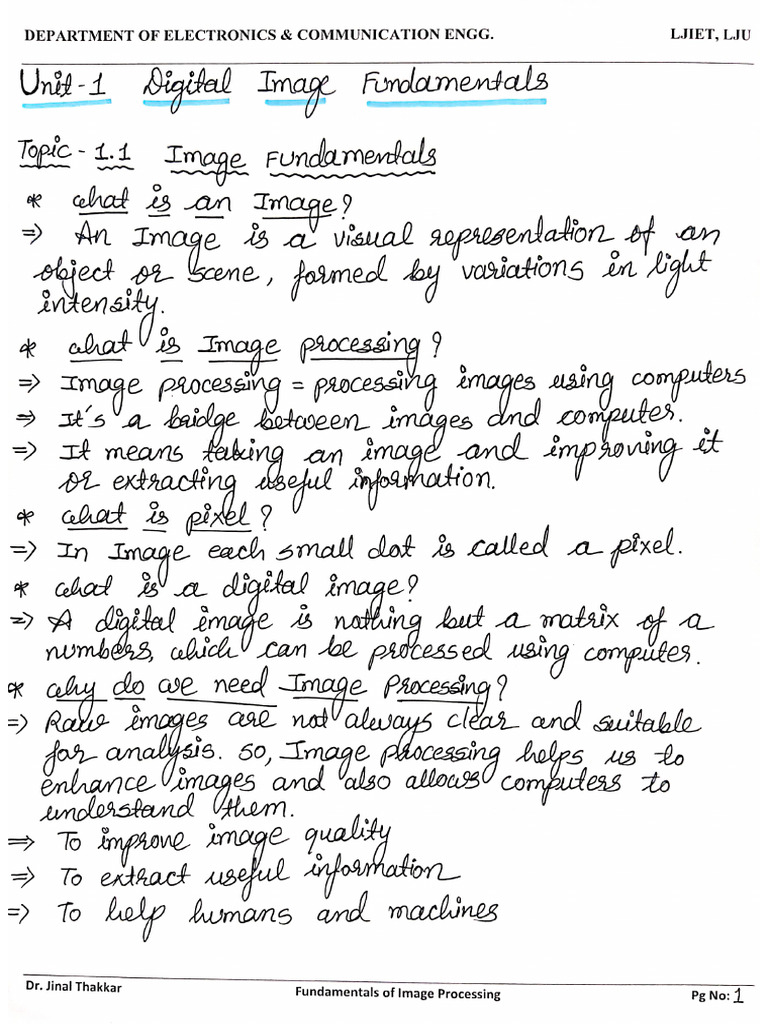 DEPARTMENT OF ELECTRONICS & COMMUNICATION ENGG. LJIET, LJU
Unit-1 Digital Image Fundamentals
Topic - 1.1 Image Fundamentals
* what is an Image?
⇒ An Image is a visual representation of an
object or scene, formed by variations in light
intensity.
* what is Image processing?
⇒ Image processing = processing images using computers
⇒ It's a bridge between images and computer.
⇒ It means taking an image and improving it
or extracting useful information.
* what is pixel?
⇒ In Image each small dot is called a pixel.
* what is a digital image?
⇒ A digital image is nothing but a matrix of a
numbers, which can be processed using computer.
* why do we need Image Processing?
⇒ Raw images are not always clear and suitable
for analysis. so, Image processing helps us to
enhance images and also allows computers to
understand them.
⇒ To improve image quality
⇒ To extract useful information
⇒ To help humans and machines
Dr. Jinal Thakkar Fundamentals of Image Processing Pg No: 1